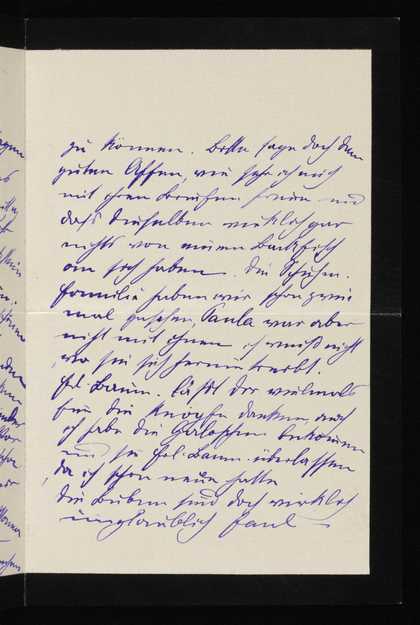 zu können. Bitte sage doch dem
guten Affen, wie sehr ich mich
mit ihren Briefen freue und
daß dieselben wirklich gar
nichts von einem Backfisch
an sich haben. Die
familie haben wir schon zwei
mal gesehen, Paula war aber
nicht mit ihnen, ich weiß nicht
wo sie sich herumtreibt.
Frl. Baum. läßt Dir vielmals
für die Knöpfe danken, auch
ich habe die Galoschen bekommen
und sie Frl. Baum. überlassen
da ich schon neue hatte
die Buben sind doch wirklich
unglaublich faul